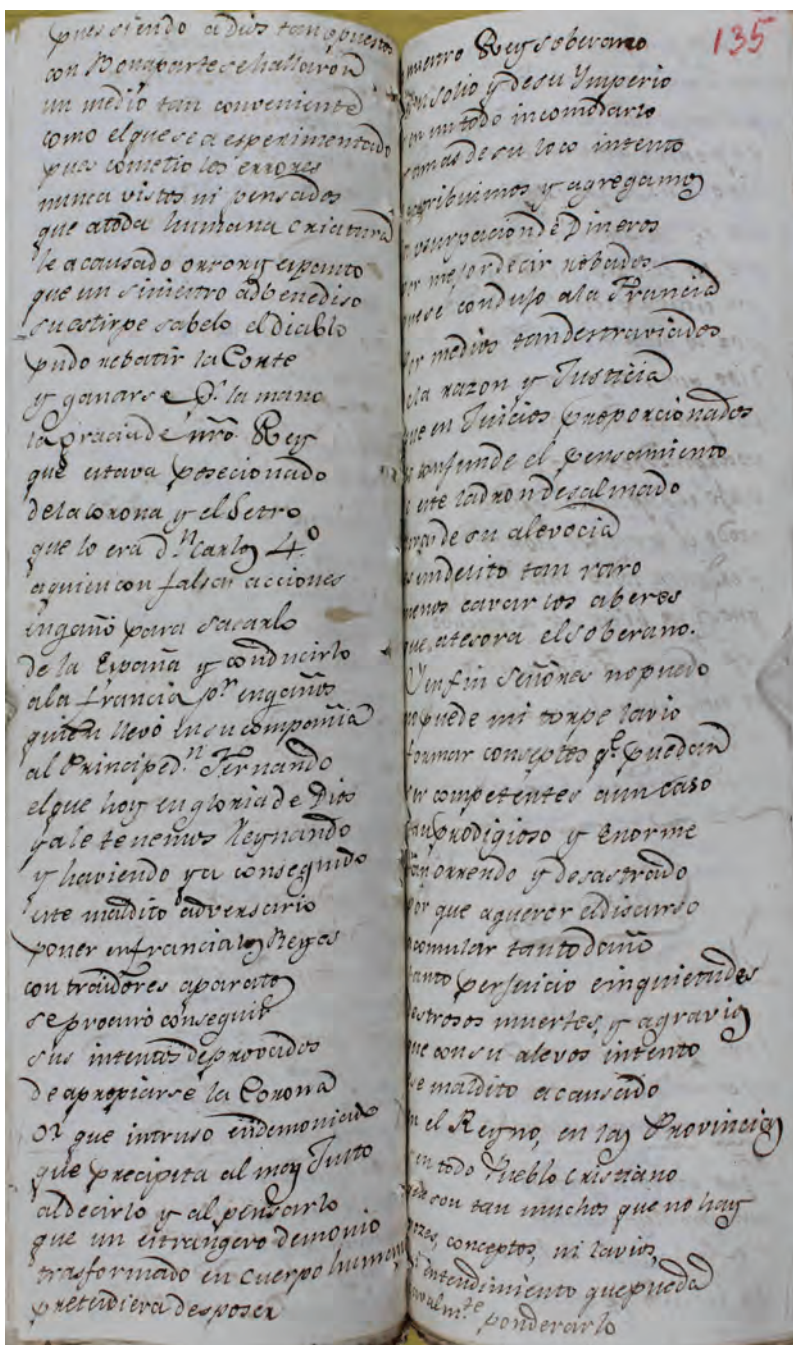 pues siendo a Dios tan opuestos
con Bonaparte se hallaron
un medio tan conveniente
como el que se a esperimentado
pues cometio los errores
nunca vistos ni pensados
que atoda humana criatura
le a causado orror y espanto
que un siniestro adbenediso
su astirpe sabelo el diablo
pudo rebatir la Corte
y ganarse Pr. la mano
la gracia de nro. Rey
que estava posecionado
de la corona y el Setro
que lo era Dn. Carlos 4.º
aquien con falsas acciones
engañó para sacarlo
de la España y conducirlo
ala Francia pr. engaños
quien llevó en su compañia
al Principe dn. Fernando
el que hoy en gloria de Dios
ya le tenemos Reynando
y haviendo ya conseguido
este maldito adversario
poner en francia los Reyes
con traidores aparatos
se procuró conseguir
sus intentos deprovados
de apropiarse la Corona
que intruso endemoniado
que precipita al mas Justo
al decirlo y al pensarlo
que un estrangero demonio
trasformado en cuerpo humano
pretendiera desposer
135
nuestro Rey soberano
solio y de su Ymperio
en un todo incomodarlo
amas de su loco intento
atribuimos y agregamos
usurpacion de Dineros
por mejor decir robados
que se condujo ala Francia
por medios tan destraviados
de la razon y Justicia
que en Juicios proporcionados
se confunde el pensamiento
este ladron desalmado
de su alevocia
un delito tan raro
menos cavar los aberes
que atesora el soberano.
Y en fin Señores no puedo
ni puede mi torpe lavio
formar conceptos qe. puedan
ser competentes aun caso
tan prodigioso y Enorme
tan orrendo y desastrado
Por que aquerer el discurso
acomular tanto daño
tanto perjuicio e inquietudes
destrosos muertes, y agravios
que con su alevos intento
ese maldito a causado
en el Reyno, en las Provincias
en todo Pueblo cristiano
son tan muchos que no hay
vozes, conceptos, ni lavios,
ni entendimiento que pueda
ponderarlo